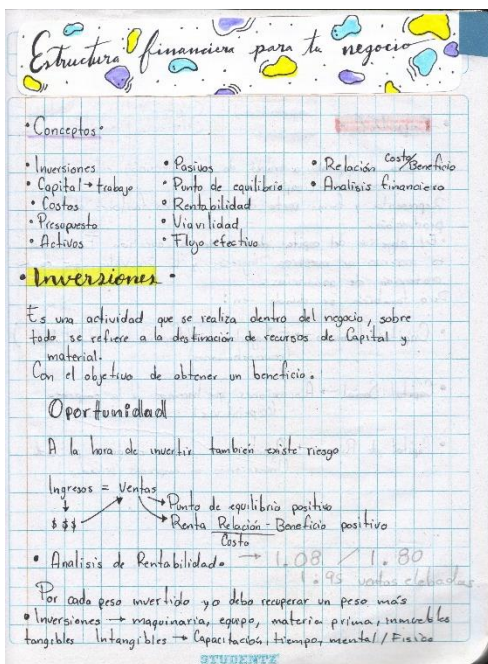 Estructura financiera para tu negocio
• Conceptos •
• Inversiones
• Capital → trabajo
• Costos
• Presopuesto
• Activos
• Pasivos
• Punto de equilibrio
• Rentabilidad
• Viavilidad
• Flujo efectivo
• Relación Costo/Beneficio
• Analisis financiero
• Inversiones •
Es una actividad que se realiza dentro del negocio, sobre
todo se refiere a la destinación de recursos de Capital y
material.
Con el objetivo de obtener un beneficio.
Oportunidad
A la hora de invertir también existe riesgo
Ingresos = Ventas
→ Punto de equilibrio positivo
$$$ → Renta Relación - Beneficio positivo
Costo
• Analisis de Rentabilidad. → 1.08 / 1.80
1.95 ventas elebadas
Por cada peso invertido yo debo recuperar un peso más
• Inversiones → maquinaria, equipo, materia prima, inmuebles
tangibles Intangibles → Capacitación, tiempo, mental / Fisico
STUDENTZ